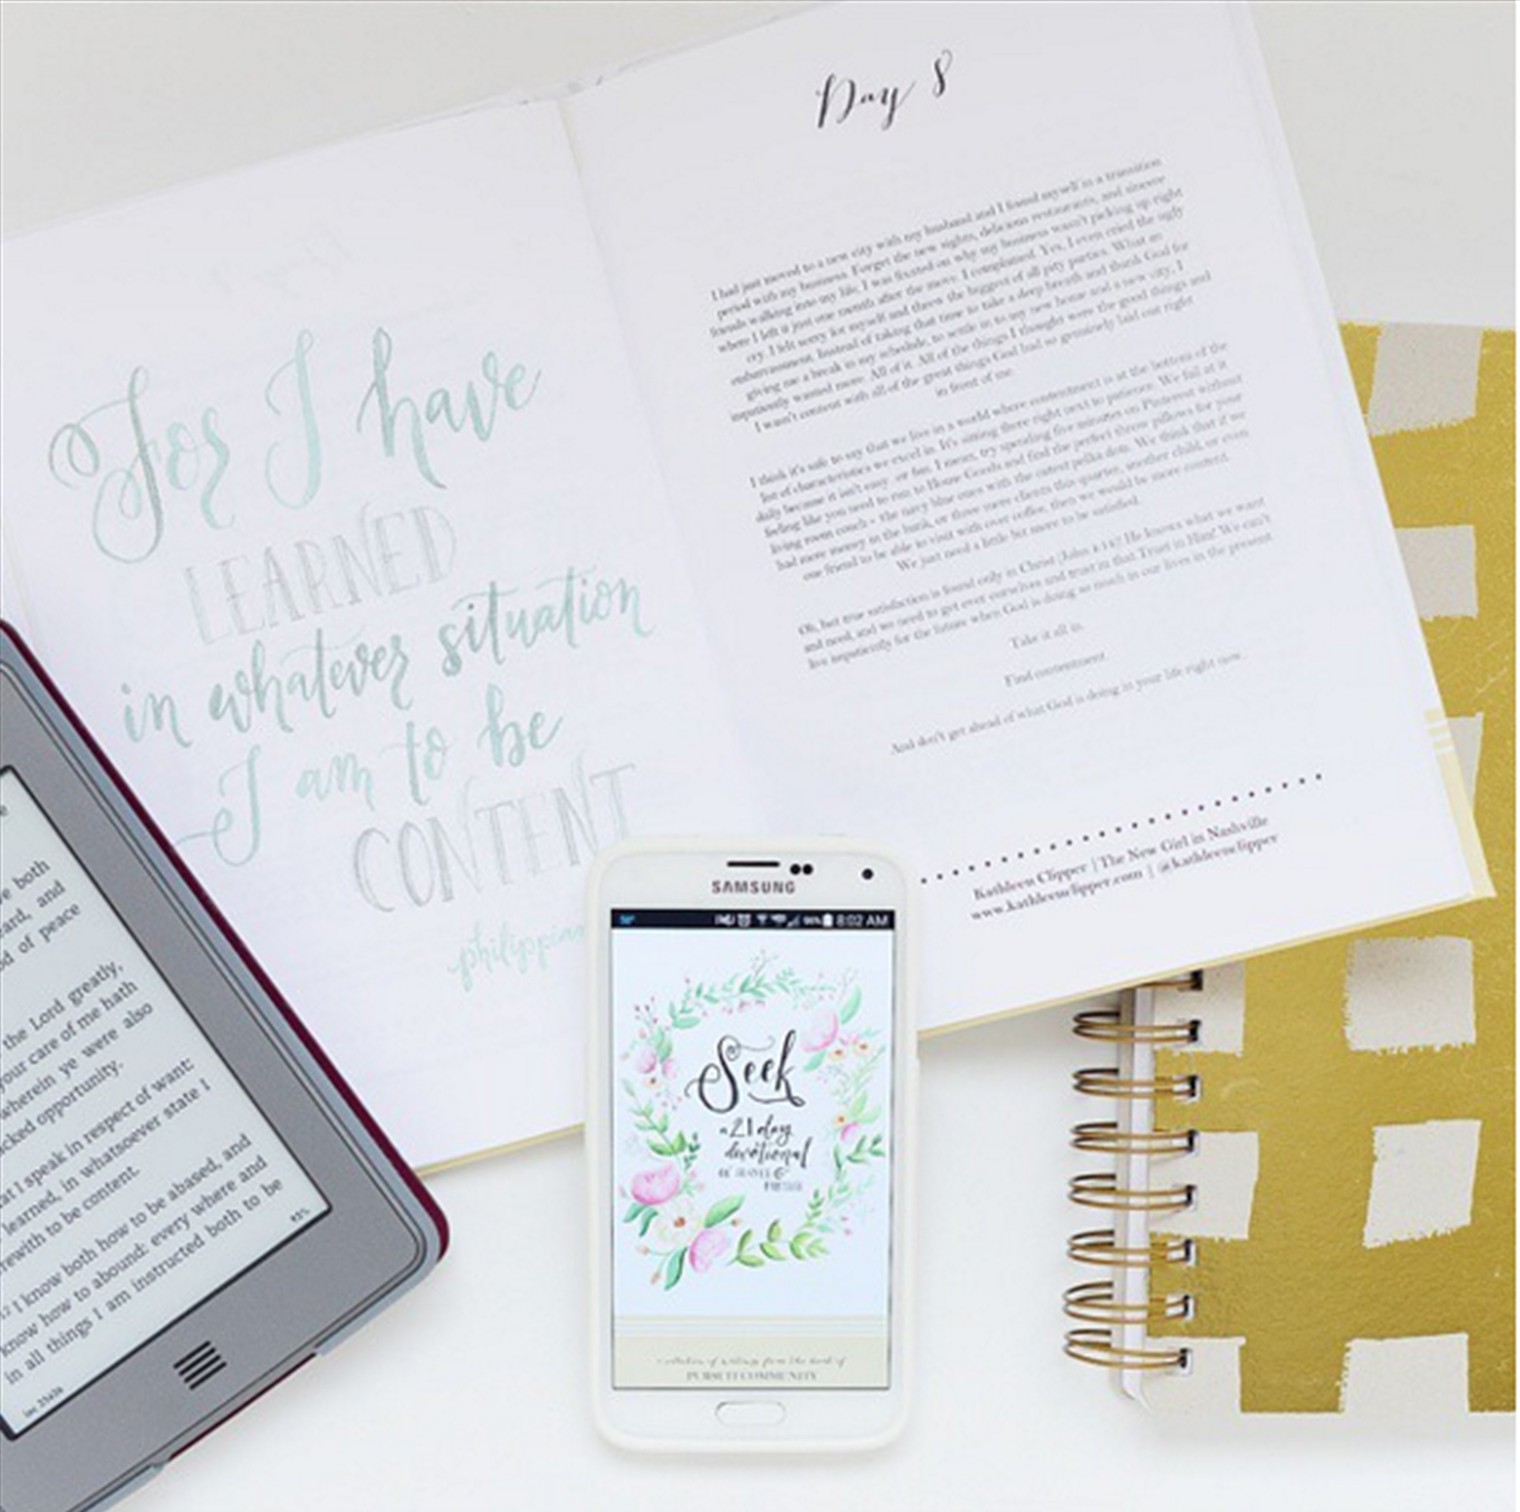 For I have
LEARNED
in whatever situation
I am to be
CONTENT
Day 8
I had just moved to a new city with my husband and I found myself in a transition
period with my business. Forget the new sights, delicious restaurants, and sincere
friends walking into my life, I was fixated on why my business wasn't picking up right
where I left it just one month after the move. I complained. Yes, I even cried the ugly
cry. I felt sorry for myself and threw the biggest of all pity parties. What an
embarrassment. Instead of taking that time to take a deep breath and thank God for
giving me a break in my schedule, to settle in to my new home and a new city, I
impatiently wanted more. All of it. All of the things I thought were the good things and
I wasn't content with all of the great things God had so genuinely laid out right
in front of me.
I think it's safe to say that we live in a world where contentment is at the bottom of the
list of characteristics we excel in. It's sitting there right next to patience. We fail at it
daily because it isn't easy, or fun. I mean, try spending five minutes on Pinterest without
feeling like you need to run to Home Goods and find the perfect throw pillows for your
living room couch - the navy blue ones with the cutest polka dots. We think that if we
had more money in the bank, or three more clients this quarter, another child, or even
one friend to be able to visit with over coffee, then we would be more content.
We just need a little bit more to be satisfied.
Oh, but true satisfaction is found only in Christ (John 4:14)! He knows what we want
and need, and we need to get over ourselves and trust in that. Trust in Him! We can't
live impatiently for the future when God is doing so much in our lives in the present.
Take it all in.
Find contentment.
And don't get ahead of what God is doing in your life right now.
Kathleen Clipper | The New Girl in Nashville
www.kathleenclipper.com | @kathleenclipper
both
ard, and
of peace
the Lord greatly,
your care of me hath
wherein ye were also
opportunity.
I speak in respect of want:
learned, in whatsoever state I
to be content.
12 I know both how to be abased, and
know how to abound: every where and
in all things I am instructed both to be
loc
SAMSUNG
8:02 AM
Seek
a 21 day
devotional
PURSUIT COMMUNITY